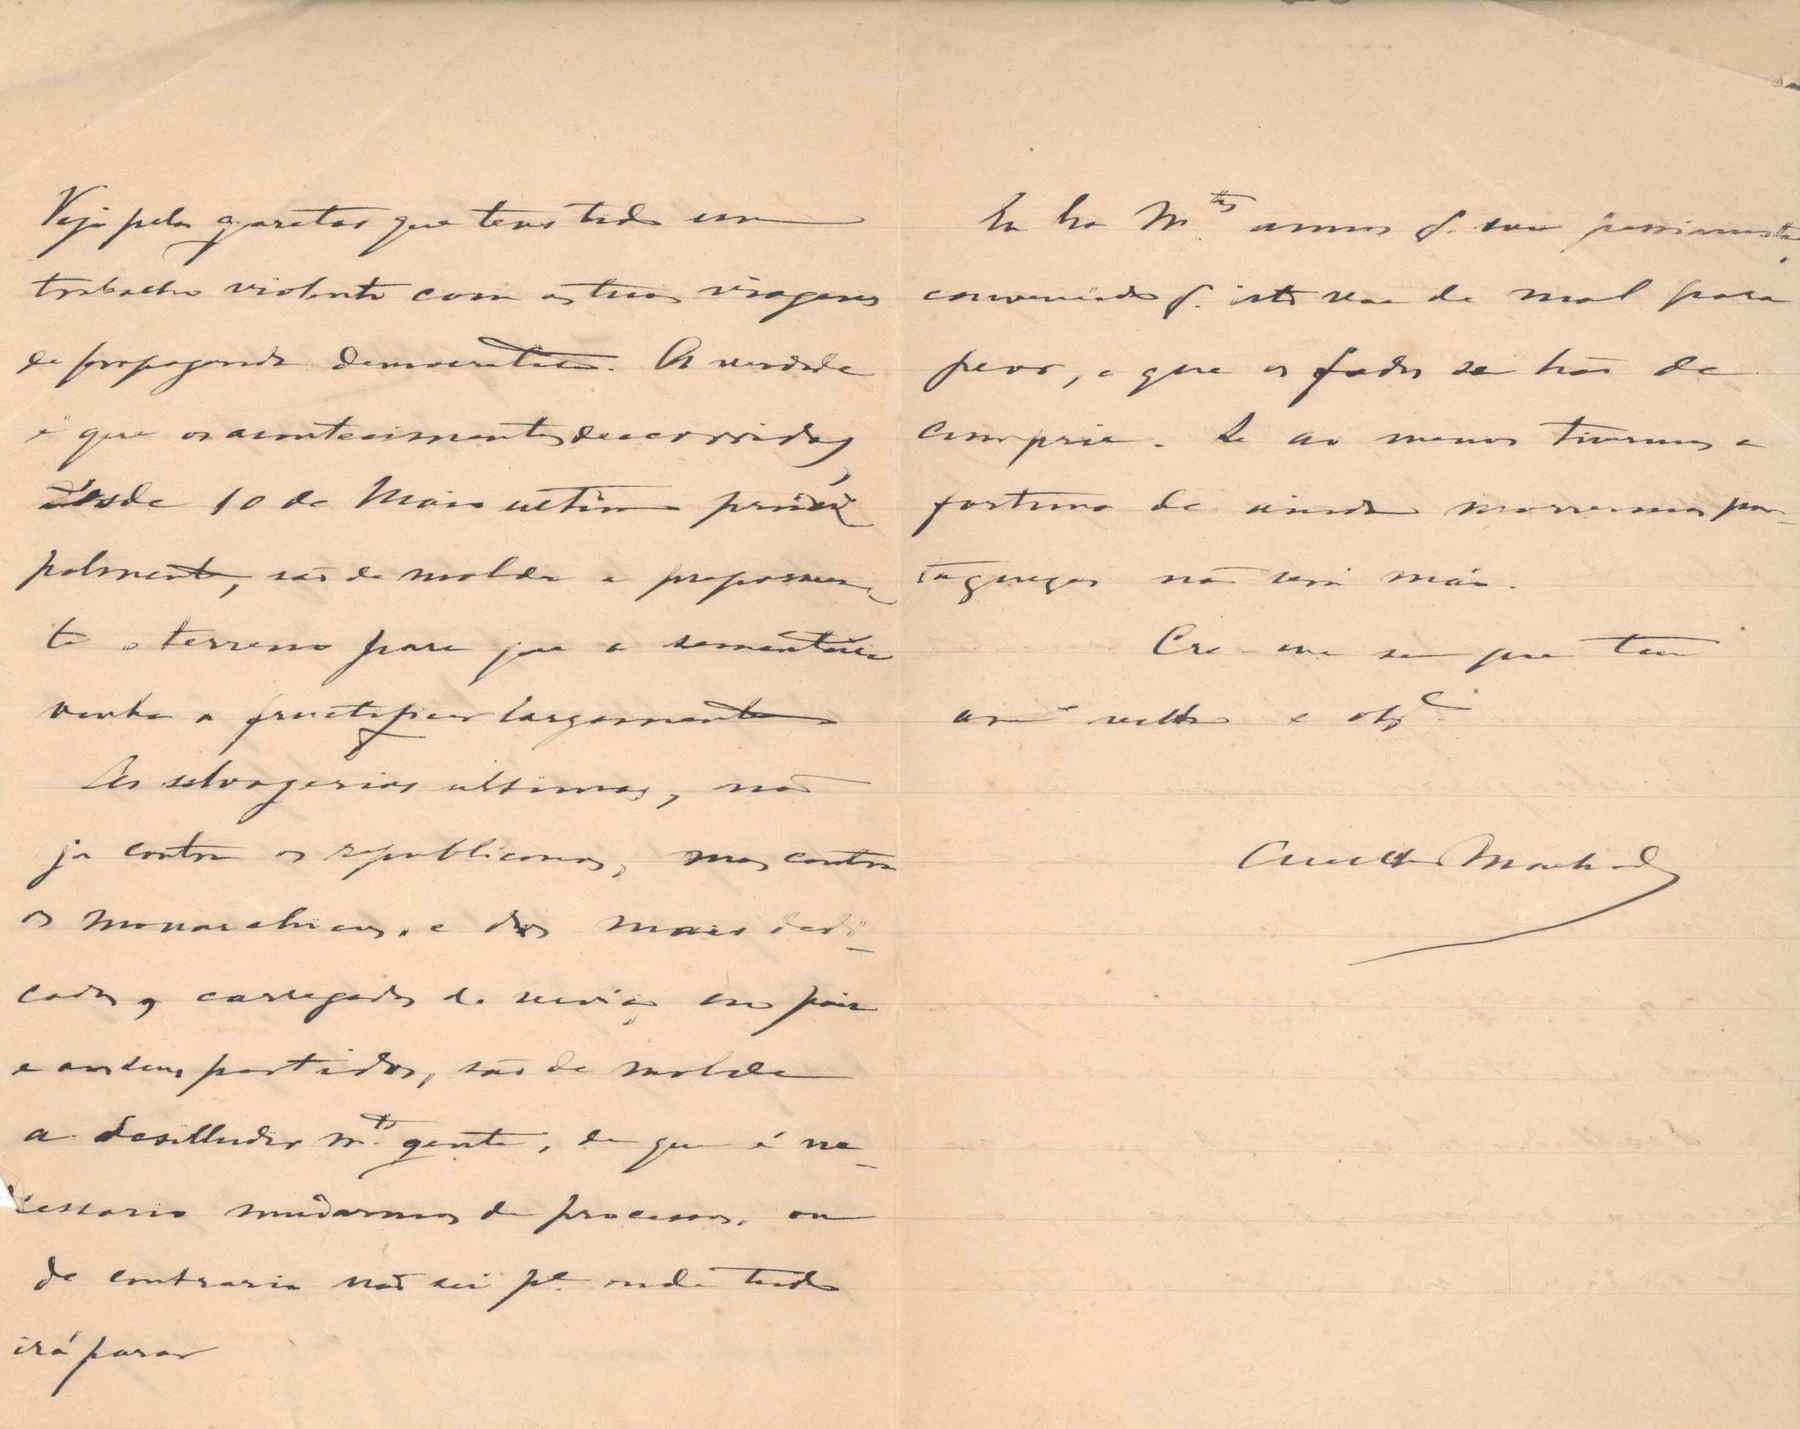 Vejo pelas gazetas que tens tido um
trabalho violento com as tuas viagens
de propaganda democratica. A verdade
é que os acontecimentos decorridos
desde 10 de Maio ultimo princi-
palmente, são de molde a
te o terreno para que a sementeira
venha a fructificar largamente
As selvagerias ultimas, não
já contra os republicanos, mas contra
os monarchicos, e dos mais dedi-
cados, carregados de serviços ao paiz
e aos seus partidos, são de molde
a desilludir m.ta gente, de que é ne-
cessario mudarmos de processos, ou
do contrario não sei p.a onde tudo
irá parar
Eu ha M.tos annos q. sou pessimista,
convencido q. isto vae de mal para
peor, e que os fados se hão de
cumprir. Se ao menos tivermos a
fortuna de ainda morrermos por-
tuguezes não será máu.
Crê-me sempre teu
am.o velho e obg.do
Machado